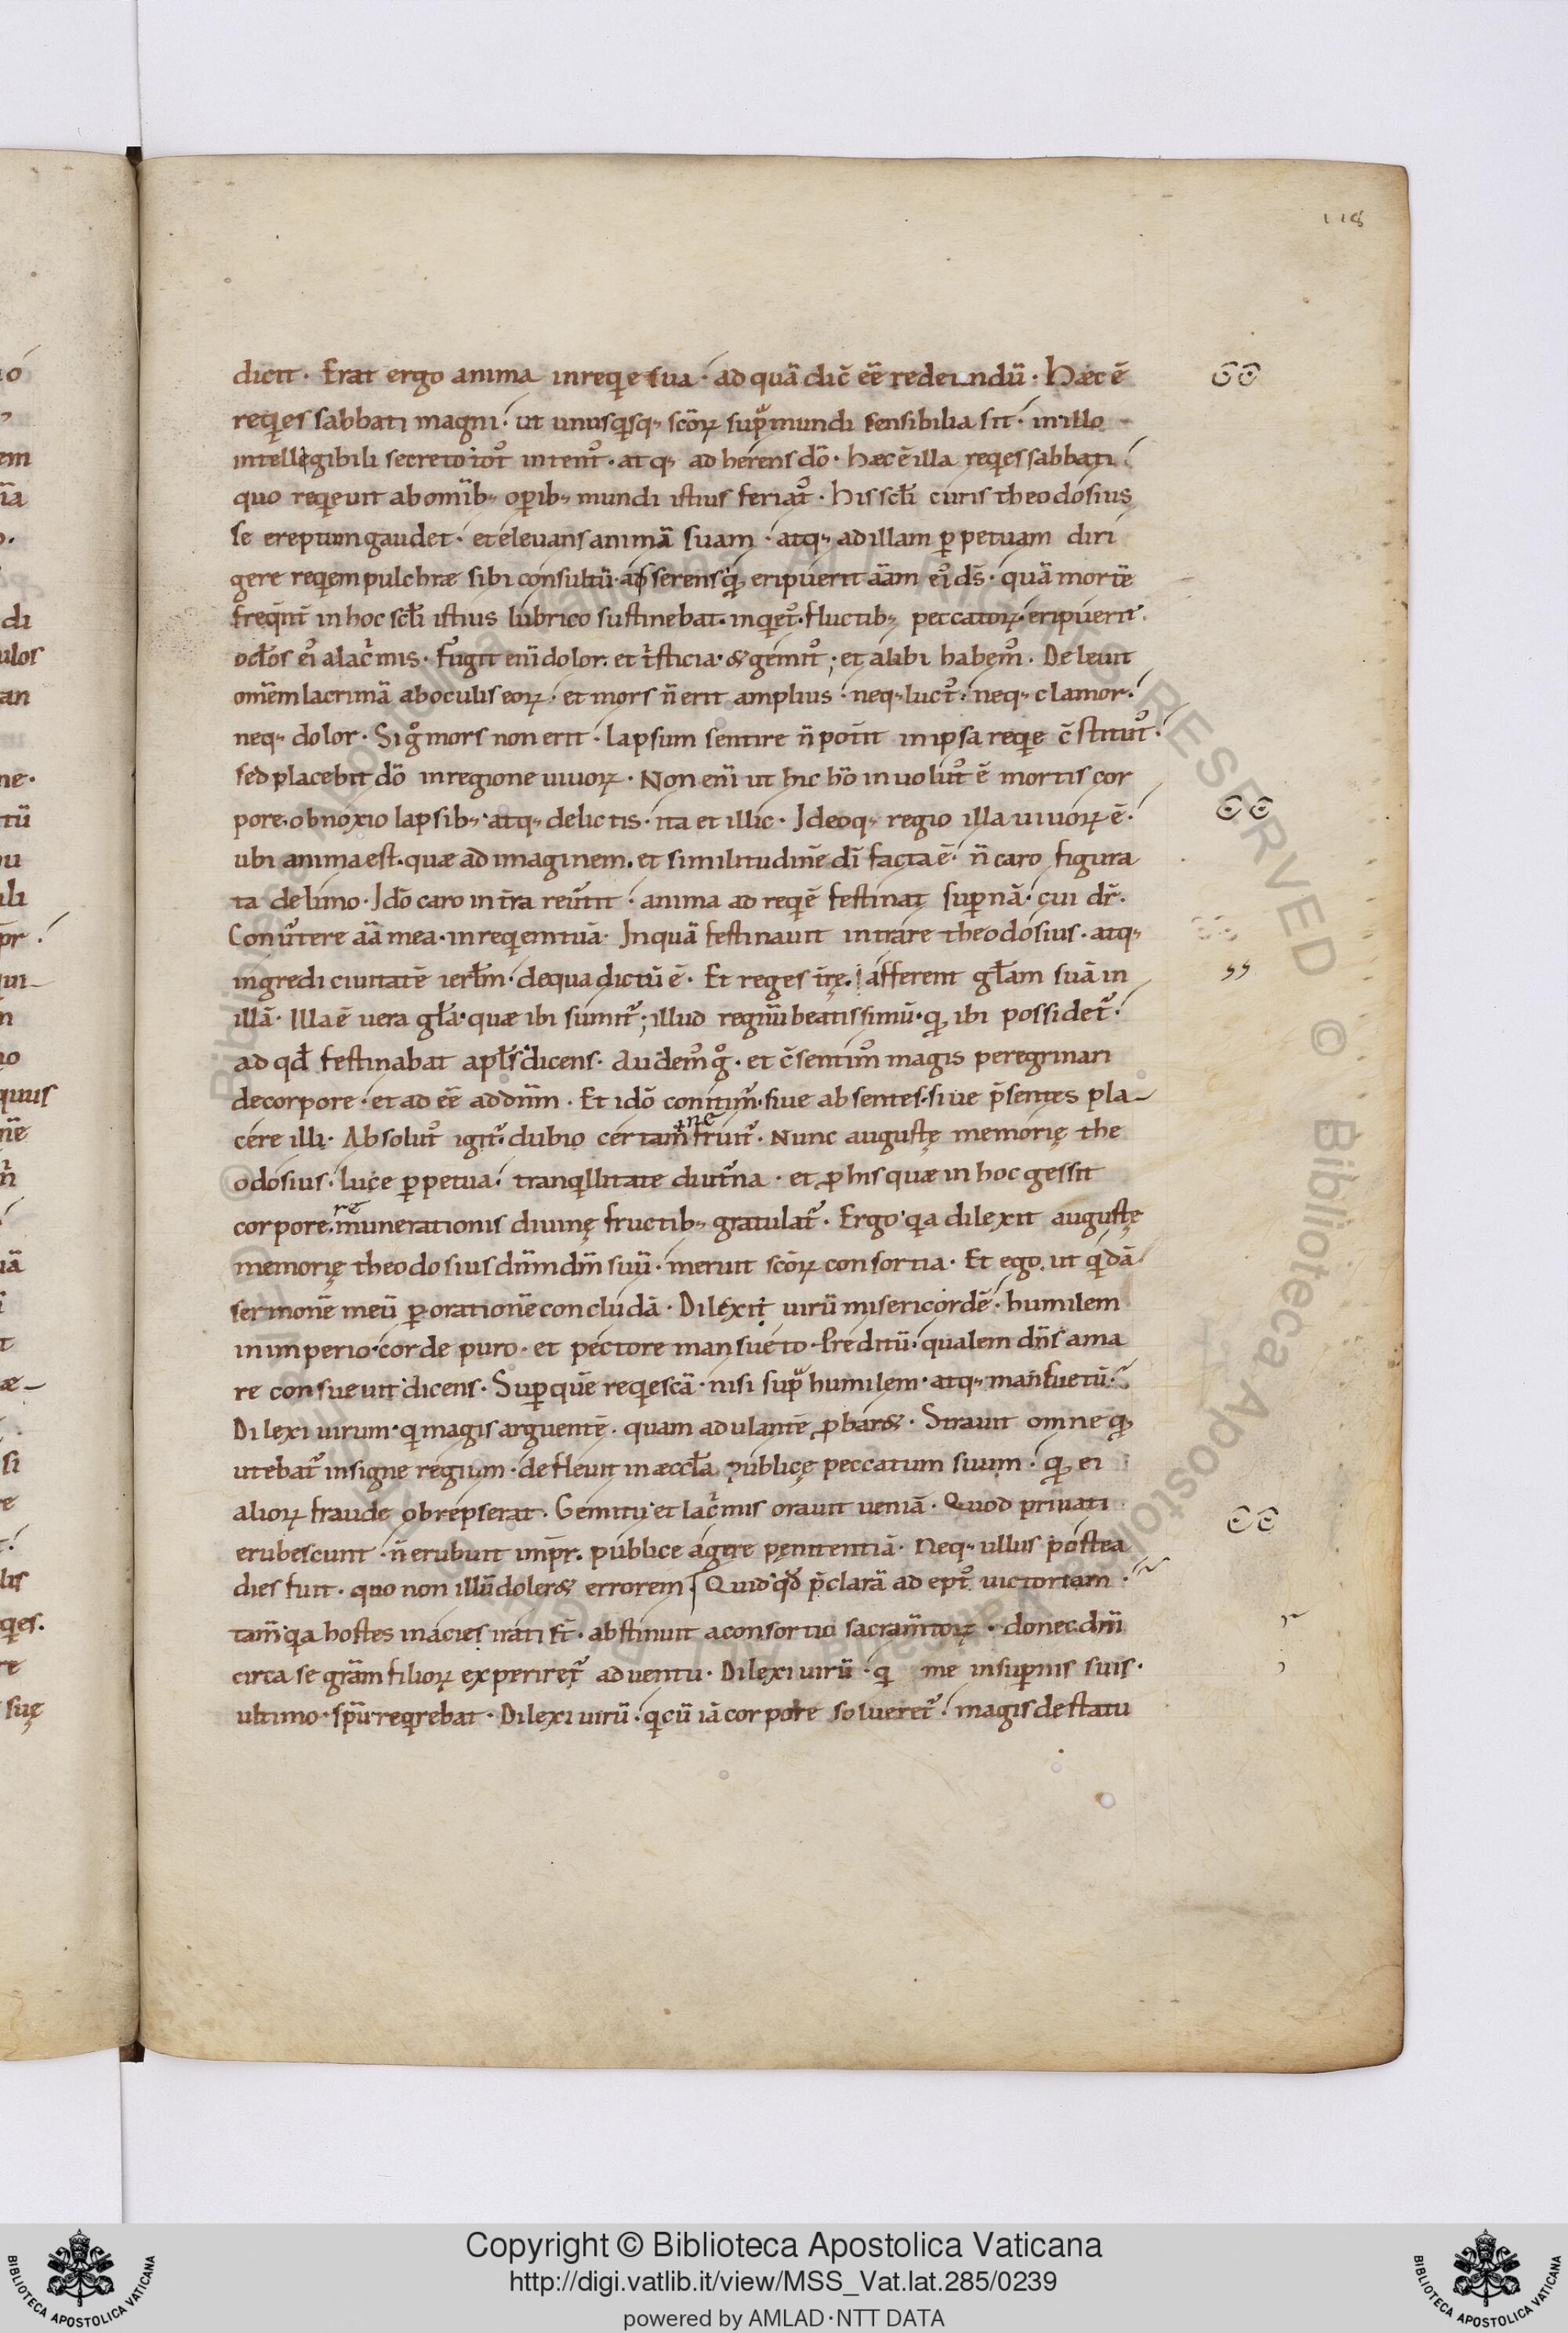 118
dicit · Erat ergo anima in reqie sua · ad quā dic̄ eē redeundū · Hæc ē
reqies sabbati magni · ut unusqisq; sc̄oꝝ sup̄ mundi sensibilia sit · in illo
intellegibili secreto tot᷒ intent᷒ · atq; ad herens dō · hæc ē illa reqies sabbati ·
quo reqieuit ab om̄ib; oꝑib; mundi istius feriat᷒ · His scl̄i curis theodosius
se ereptum gaudet · et eleuans animā suam · atq; ad illam ꝑpetuam diri
gere reqiem pulchræ sibi consultū · asserens qd̄ eripuerit aīam ei᷒ ds̄ · quā mortē
freqn̄t in hoc scl̄i istius lubrico sustinebat · inqiet᷒ · fluctib; peccatoꝝ · eripuerit
ocl̄os ei᷒ a lac̄mis · Fugit enī dolor · et tr̄sticia · & gemit᷒ ; et alibi habem᷒ · Deleuit
omēm lacrimā ab oculis eoꝝ · et mors n̄ erit amplius · neq; luct᷒ · neq; clamor ·
neq; dolor · Si g̊ mors non erit · lapsum sentire n̄ pot̄it in ipsa reqie c̄stitut᷒ ·
sed placebit dō in regione uiuoꝝ · Non enī ut hic hō inuolut᷒ ē mortis cor
pore · obnoxio lapsib; atq; delictis · ita et illic · Ideoq; regio illa uiuoꝝ ē ·
ubi anima est · quæ ad imaginem · et similitudinē dī facta ē · n̄ caro figura
ta de limo · Idō caro in t̄ra reūtit · anima ad reqiē festinat supnā · cui dr̄ ·
Conūtere aīa mea · in reqiem tuā · In quā festinauit intrare theodosius · atq;
ingredi ciuitatē ierl̄m · de qua dictū ē · Et reges tr̄ę · afferent gl̄am suā in
illā · Illa ē uera gl̄a · quæ ibi sumit᷒ ; illud regnū beatissimū · qd̄ ibi possidet᷒ ·
ad qd̄ festinabat apl̄s dicens · Audem᷒ g̊ · et c̄sentim᷒ magis peregrinari
de corpore · et ad eē ad dn̄m · Et idō conitim᷒ · siue absentes · siue p̄sentes pla-
cere illi · Absolut᷒ igit᷒ dubio certamine fruit᷒ · Nunc augustę memorię the
odosius · luce ꝑpetua · tranqillitate diut᷒na · et ꝓ his quæ in hoc gessit
corpore · remunerationis diuinę fructib; gratulat᷒ · Ergo qia dilexit augustę
memorię theodosius dn̄m dm̄ suū · meruit sc̄oꝝ consortia · Et ego · ut qidā
sermonē meū ꝑorationē concludā · Dilexi uirū misericordē · humilem
in imperio · corde puro · et pectore mansueto · Preditū · qualem dn̄s ama
re consueuit dicens · Sup quē reqiescā · nisi sup̄ humilem · atq; mansuetū ·
Dilexi uirum · qi magis arguentē · quam adulantē ꝓbar& · Strauit omne qd̄
utebat᷒ insigne regium · defleuit in æccl̄a publicę peccatum suum · qd̄ ei
alioꝝ fraude obrepserat · Gemitu et lac̄mis orauit ueniā · Quod priuati
erubescunt · n̄ erubuit imp̄r · publice agere pęnitentiā · Neq; ullus postea
dies fuit · quo non illū doler& errorem · Quid qd̄ p̄clarā adept᷒ uictoriam ·
tam̄ qia hostes in acies irati s̄t · abstinuit a consortio sacram̄toꝝ · donec dn̄i
circa se gr̄am filioꝝ experiret᷒ aduentu · Dilexi uirū · qi me in supnis suis ·
ultimo · sp̄u reqirebat · Dilexi uirū · qi cū iā corpore solueret᷒ · magis de statu
Copyright © Biblioteca Apostolica Vaticana
http://digi.vatlib.it/view/MSS_Vat.lat.285/0239
powered by AMLAD·NTT DATA